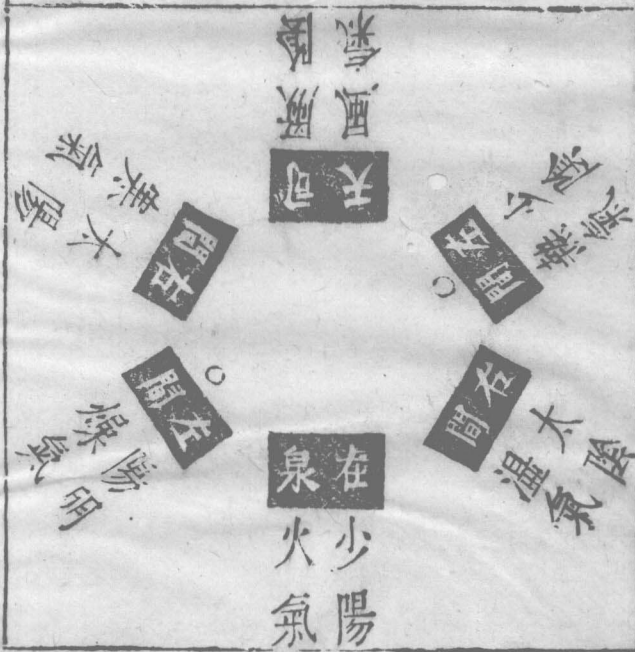 司天
厥陰
風氣
左間
少陰
熱氣
右間
太陰
湿氣
在泉
少陽
火氣
左間
陽明
燥氣
右間
太陽
寒氣